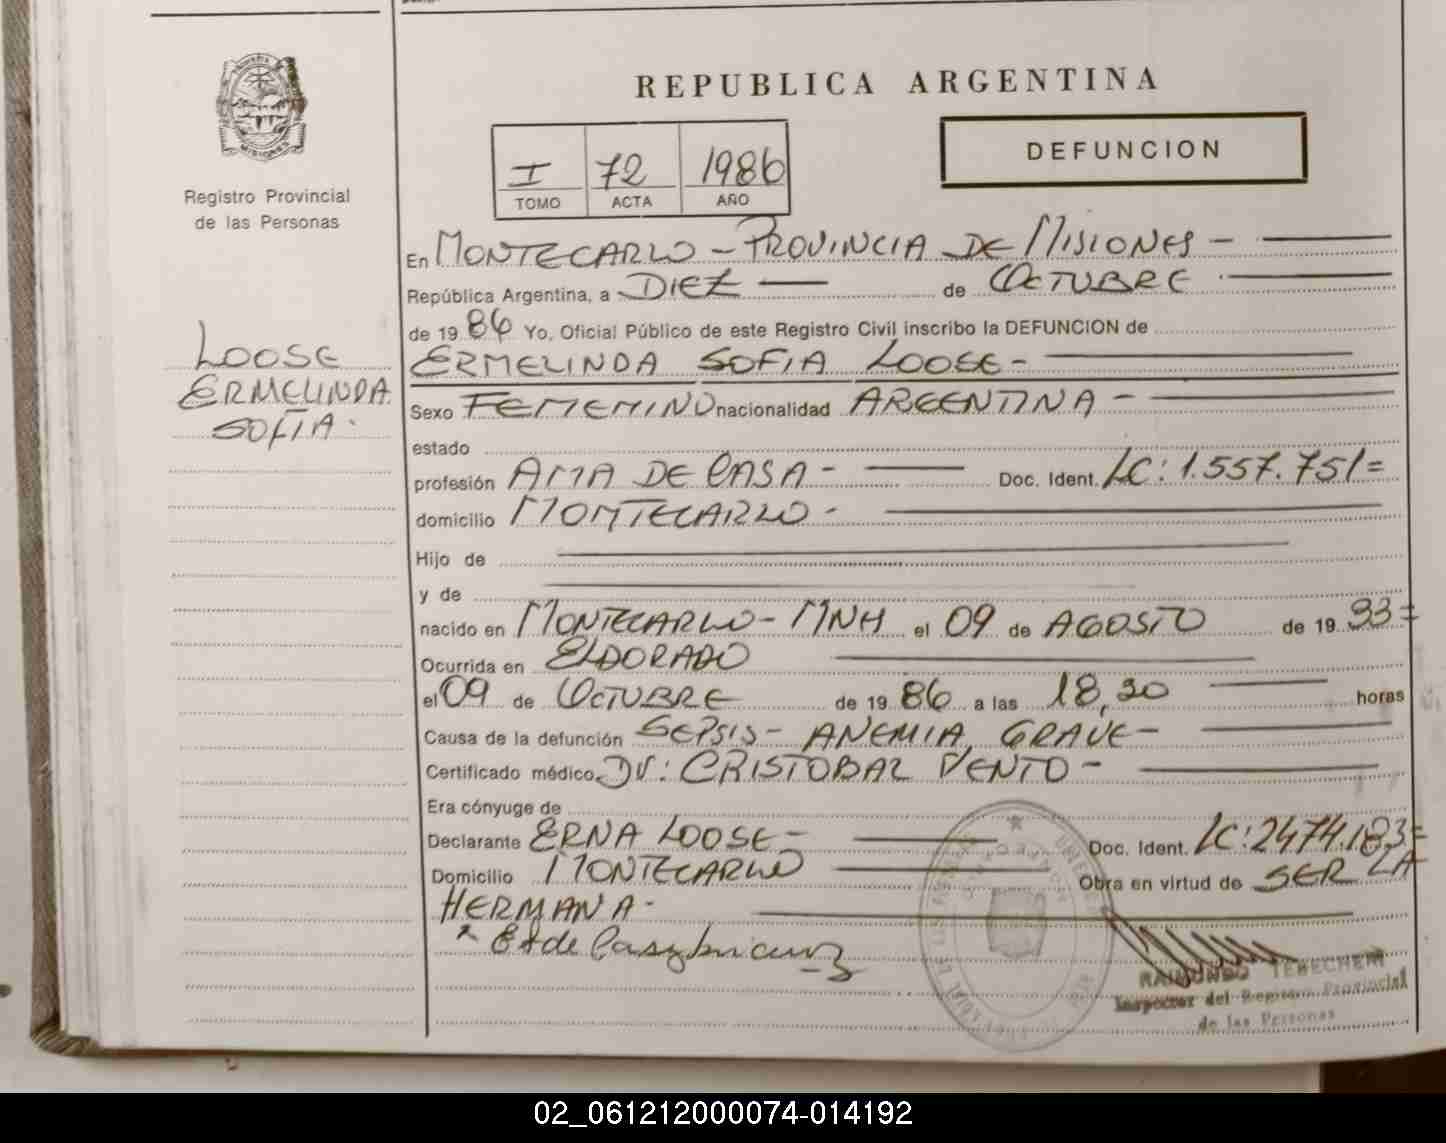 REPUBLICA ARGENTINA
DEFUNCION
MISIONES
Registro Provincial
de las Personas
I 72 1986
TOMO ACTA AÑO
En MONTECARLO - PROVINCIA DE MISIONES -
República Argentina, a DIEZ de OCTUBRE
de 19 86 Yo, Oficial Público de este Registro Civil inscribo la DEFUNCION de
LOOSE
ERMELINDA
SOFIA.
ERMELINDA SOFIA LOOSE -
Sexo FEMEMINO nacionalidad ARGENTINA -
estado
profesión AMA DE CASA - Doc. Ident. LC: 1.557.751=
domicilio MONTECARLO -
Hijo de
y de
nacido en MONTECARLO - MNH el 09 de AGOSTO de 19 33=
Ocurrida en ELDORADO
el 09 de OCTUBRE de 19 86 a las 18,30 horas
Causa de la defunción SEPSIS - ANEMIA GRAVE -
Certificado médico Dr: CRISTOBAL VENTO -
Era cónyuge de
Declarante ERNA LOOSE - Doc. Ident. LC: 2474.183=
Domicilio MONTECARLO Obra en virtud de SER LA
HERMANA -
RAIMUNDO
Inspector del Registro Provincial
de las Personas
02_061212000074-014192